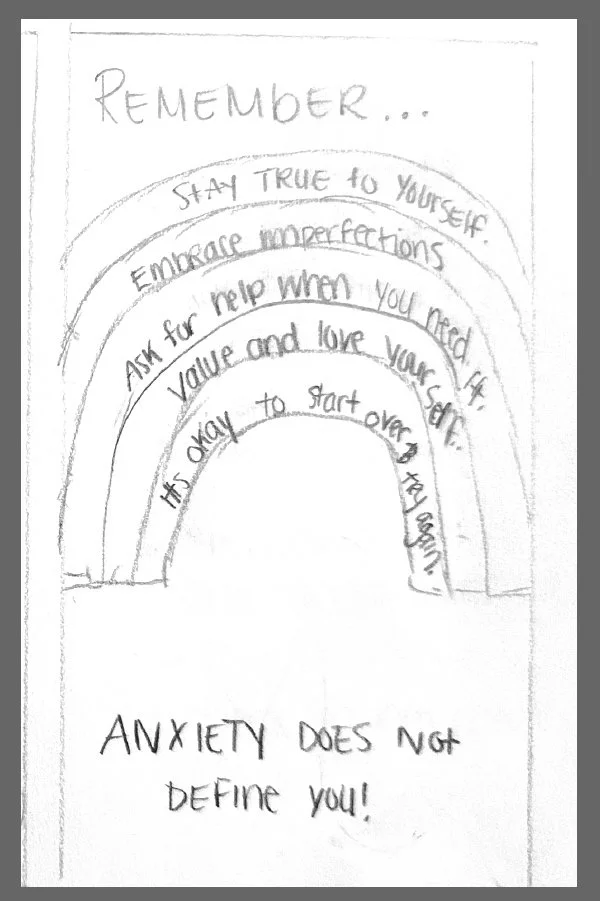 REMEMBER...
STAY TRUE to YOURSELF.
EMBRACE imperfections
Ask for help when you need it.
value and love yourself.
It's okay to start over & try again.
ANXIETY DOES Not
DEFine you!